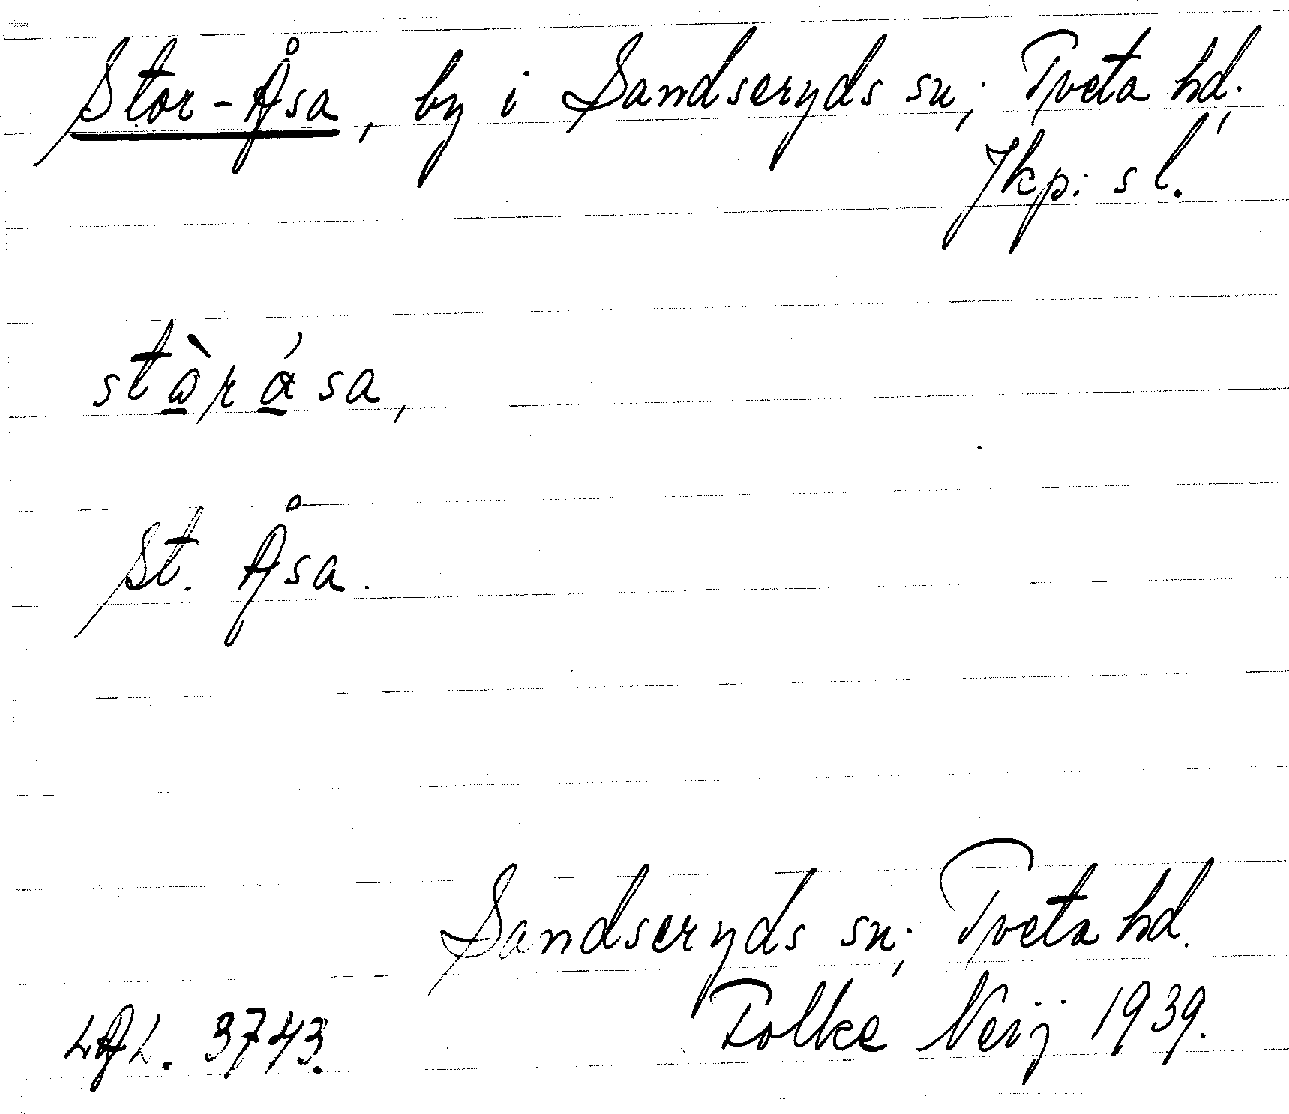 Stor-Åsa, by i Sandseryds sn; Tveta hd;
Jkp: s l.
stòrása,
St. Åsa.
Sandseryds sn; Tveta hd.
LAL. 3743. Folke Neij 1939.